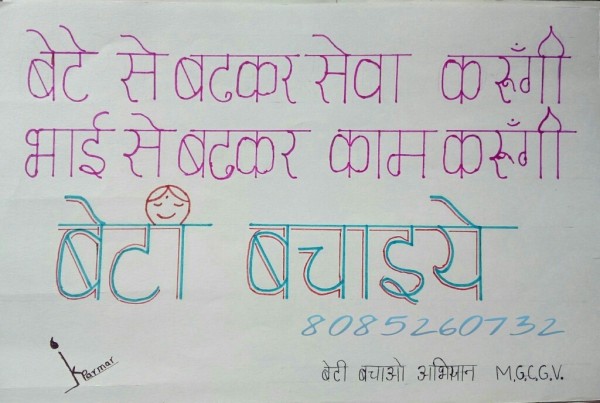 बेटे से बढकर सेवा करूँगी
भाई से बढकर काम करूँगी
बेटी बचाइये
8085260732
K Parmar
बेटी बचाओ अभियान M.G.C.G.V.